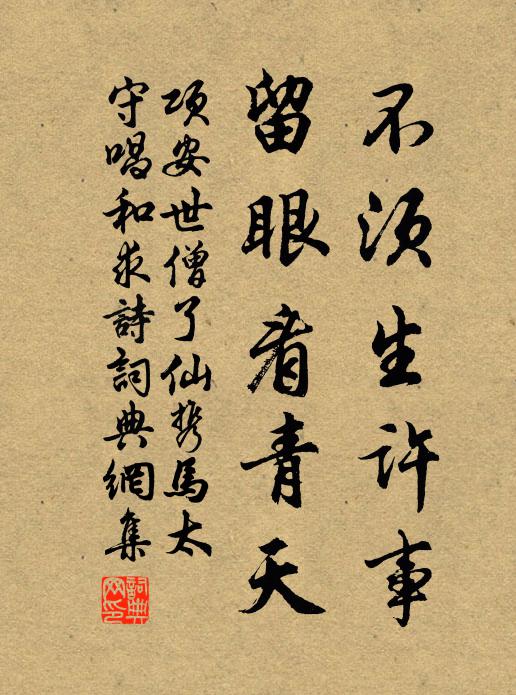 不須生許事
留眼看青天
項安世僧了仙携馬太
守唱和求詩詞典網集
詞典網印